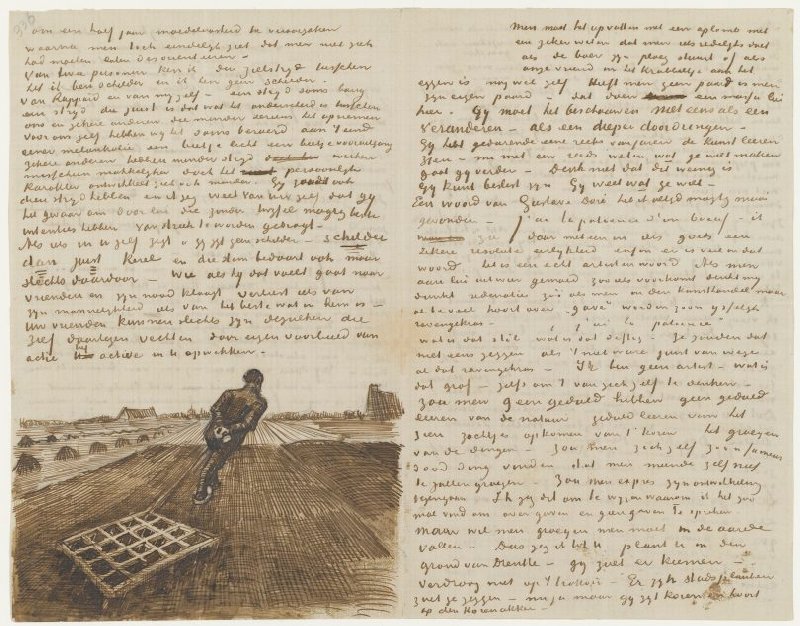 336
om een half jaar moedeloosheid te veroorzaken
waarna men toch eindelijk ziet dat men niet zich
had moeten laten desorienteeren.
Van twee personen ken ik den zielstrijd tusschen
het ik ben schilder en ik ben geen schilder.
Van Rappard en van mijzelf – een strijd soms bang
een strijd die juist is dat wat het onderscheid is tusschen
ons en zekere anderen die minder serieus het opnemen
voor ons zelf hebben wij het soms beroerd aan 't eind
eener melankolie een beetje licht een beetje vooruitgang
zekere anderen hebben minder strijd
misschien makkelijker doch het persoonlijk
karakter ontwikkelt zich ook minder. Gij ook
dien strijd hebben en ik zeg weet van U zelf dat gij
het gevaar om door lui die zonder twijfel magnifieke
intenties hebben van streek te worden gebragt.
Als iets in U zelf zegt gij zijt geen schilder – schilder
dan juist kerel en die stem bedaart ook maar
slechts daardoor – wie als hij dat voelt gaat naar
vrienden en zijn nood klaagt verliest iets van
zijn mannelijkheid iets van het beste wat in hem is –
Uw vrienden kunnen slechts zijn dezulken die
zelf daartegen vechten door eigen voorbeeld van
actie het active in U opwekken –
Men moet het opvatten met een aplomb met
een zeker weten dat men iets redelijks doet
als de boer zijn ploeg stuurt of als
onze vriend in het krabbeltje aan het
eggen is nog wel zelf Heeft men geen paard is men
zijn eigen paard – dat doen een massa lui
hier. Gij moet het beschouwen niet eens als een
veranderen – als een dieper doordringen –
Gij hebt gedurende eene reeks van jaren de kunst leeren
zien – nu met een reeds weten wat ge wilt maken
gaat gij verder – Denk niet dat dit weinig is
Gij kunt beslist zijn Gij weet wat ge wilt –
Een woord van Gustave Doré heb ik altijd magtig mooi
gevonden – j'ai la patience d'un boeuf – ik
zie daar meteen in iets goeds een
zekere resolute eerlijkheid enfin er is veel in dat
woord het is een echt artisten woord Als men
aan lui uit wier gemoed zoo iets voortkomt denkt mij
dunkt redenaties zoo als men in den kunsthandel maar
al te veel hoort over "gave" worden zoo'n ijsselijk
ravengekras – "j'ai la patience"
wat is dat stil wat is dat deftig – Ze zouden dat
niet eens zeggen als 't niet ware juist van wege
al dat ravengekras – Ik ben geen artist – wat is
dat grof – zelfs om 't van zich zelf te denken –
zou men geen geduld hebben geen geduld
leeren van de natuur geduld leeren van het
zien zachtjes opkomen van 't koren het groeien
van de dingen – zou men zich zelf zoo'n immens
dood ding vinden dat men meende zelf niet
te zullen groeien zou men expres zijn ontwikkeling
tegengaan Ik zeg dit om te wijzen waarom ik het zoo
mal vind om over gaven en geen gaven te spreken.
Maar wil men groeien men moet in de aarde
vallen – Dus zeg ik tot U plant U in den
grond van Drenthe – gij zult er kiemen –
verdroog niet op 't trottoir – Er zijn stadsplanten
zult ge zeggen – nu ja maar gij zijt koren en hoort
op den korenakker –